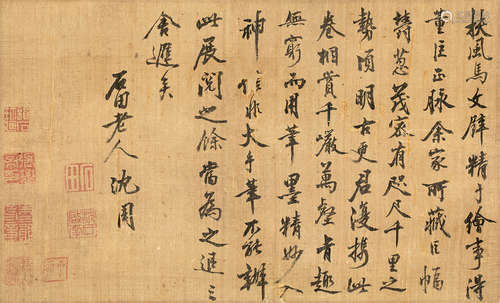 扶風馬文璧精于繪事得
董巨正脉余家所藏巨幅
蓊葱茂密有咫尺千里之
勢頃明古更君復携此
卷相賞千巖萬壑肖趣
無窮而用筆墨精妙入
神信非大手筆不能辦
此展閱之餘當為之退三
舍遲矣
石田老人沈周